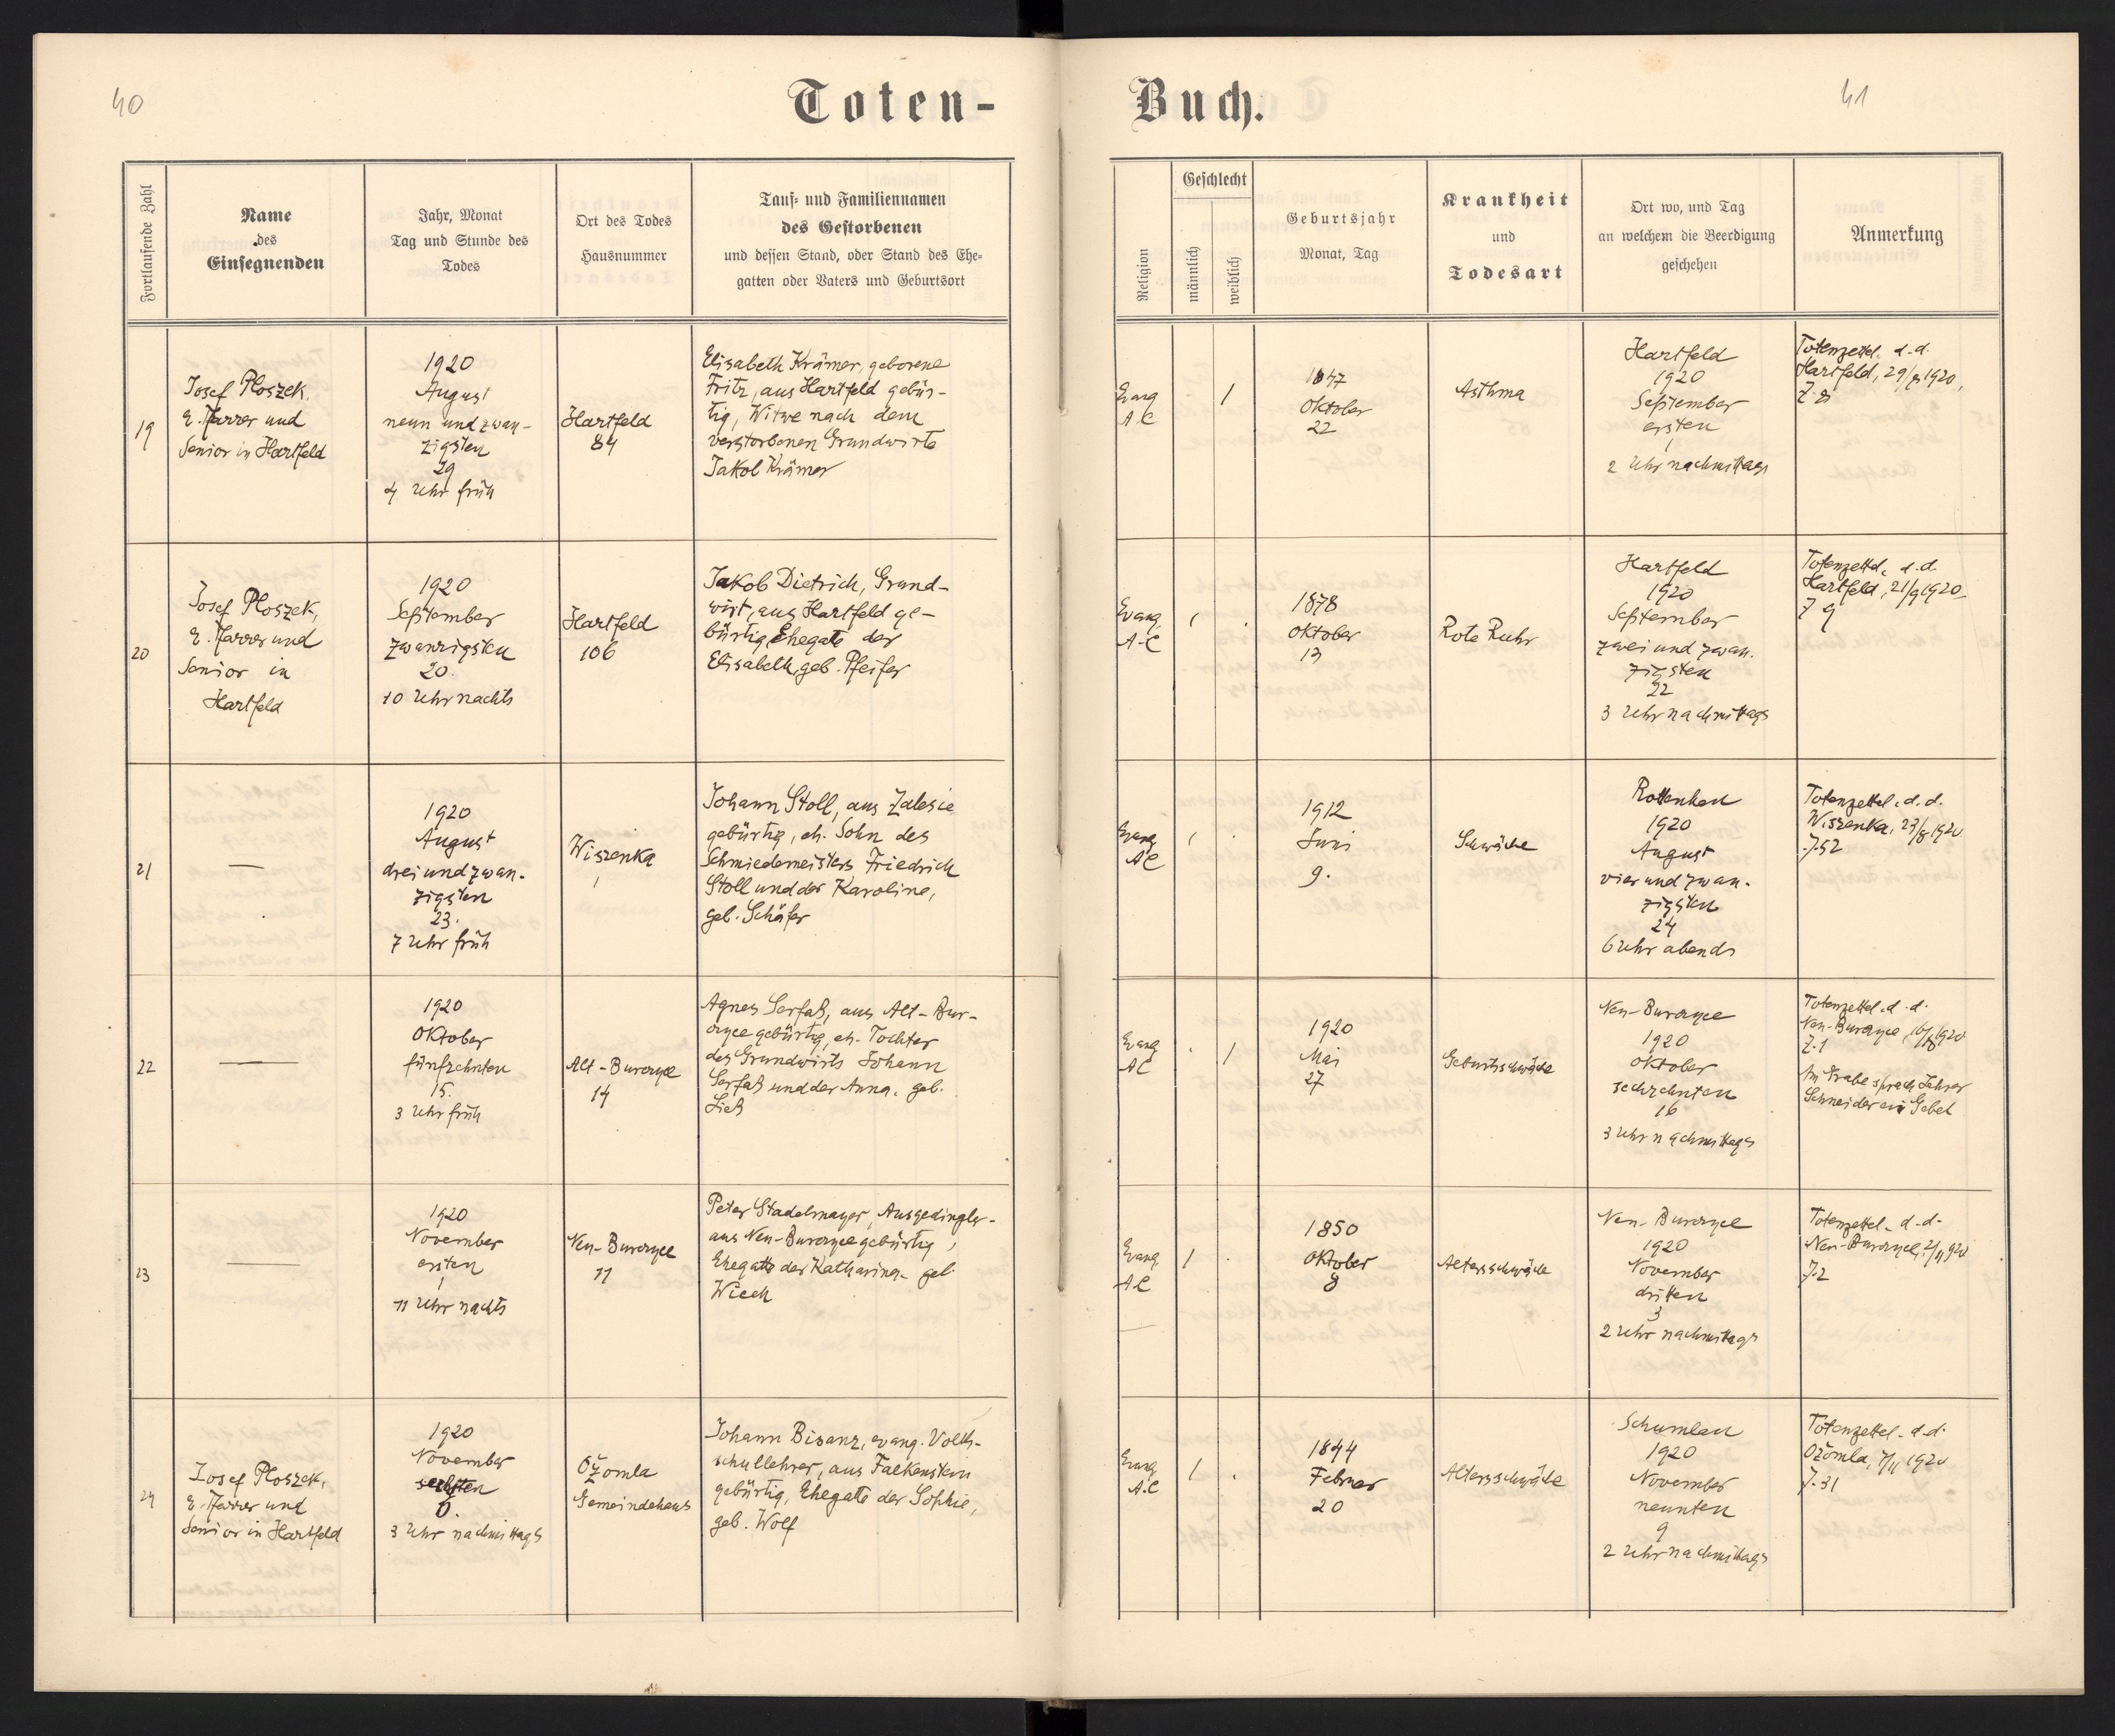 40
Toten-
Fortlaufende Zahl
Name
des
Einsegnenden
Jahr, Monat
Tag und Stunde des
Todes
Ort des Todes
Hausnummer
Tauf- und Familiennamen
des Gestorbenen
und dessen Stand, oder Stand des Ehe-
gatten oder Vaters und Geburtsort
19
Josef Ploszek,
e. Pfarrer und
Senior in Hartfeld
1920
August
neun und zwan-
zigsten
29
4 Uhr früh
Hartfeld
84
Elisabeth Krämer, geborene
Fritz, aus Hartfeld gebür-
tig, Witwe nach dem
verstorbenen Grundwirte
Jakob Krämer
20
Josef Ploszek,
e. Pfarrer und
Senior in
Hartfeld
1920
September
zwanzigsten
20.
10 Uhr nachts
Hartfeld
106
Jakob Dietrich, Grund-
wirt, aus Hartfeld ge-
bürtig, Ehegatte der
Elisabeth, geb. Pfeifer
21
—
1920
August
drei und zwan-
zigsten
23.
7 Uhr früh
Wiszenka
Johann Stoll, aus Zalesie
gebürtig, eh. Sohn des
Schmiedemeisters Friedrich
Stoll und der Karoline,
geb. Schäfer
22
—
1920
Oktober
fünfzehnten
15.
3 Uhr früh
Alt-Burczyce
14
Agnes Serfaß, aus Alt-Bur-
czyce gebürtig, eh. Tochter
des Grundwirts Johann
Serfaß und der Anna, geb.
23
—
1920
November
ersten
1
11 Uhr nachts
Neu-Burczyce
11
Peter Stadelmayer, Ausgedingler-
aus Neu-Burczyce gebürtig,
Ehegatte der Katharina- geb.
Wiech
24
Josef Ploszek,
e. Pfarrer und
Senior in Hartfeld
1920
November
sechsten
6.
3 Uhr nachmittags
Ożomla
Gemeindehaus
Johann Bisanz, evang. Volks-
schullehrer, aus Falkenstein
gebürtig, Ehegatte der Sophie,
geb. Wolf
Buch.
41
Religion
Geschlecht
männlich
weiblich
Geburtsjahr
Monat, Tag
Krankheit
und
Todesart
Ort wo, und Tag
an welchem die Beerdigung
geschehen
Anmerkung
Evang
A.C
1
1847
Oktober
22
Asthma
Hartfeld
1920
September
ersten
1
2 Uhr nachmittags
Totenzettel, d.d.
Hartfeld, 29/8 1920,
Z. 8
Evang
A.C
1
1878
Oktober
13
Rote Ruhr
Hartfeld
1920
September
zwei und zwan-
zigsten
22
3 Uhr nachmittags
Totenzettel, d.d.
Hartfeld, 21/9 1920
Z 9
Evang
AC
1
1912
Juni
9.
Schwäche
Rottenhan
1920
August
vier und zwan-
zigsten
24
6 Uhr abends
Totenzettel, d.d.
Wiszenka, 23/8 1920
Z. 52
Evang
AC
1
1920
Mai
27
Geburtsschwäche
Neu-Burczyce
1920
Oktober
sechzehnten
16
3 Uhr nachmittags
Totenzettel, d.d.
Neu-Burczyce, 16/10 1920
Z. 1
Am Grabe sprach Lehrer
Schneider ein Gebet
Evang
A.C
1
1850
Oktober
8
Altersschwäche
Neu-Burczyce
1920
November
dritten
3
2 Uhr nachmittags
Totenzettel, d.d.
Neu-Burczyce, 2/11 920
Z. 2
Evang
A.C
1
1844
Februar
20
Altersschwäche
Schumlau
1920
November
neunten
9
2 Uhr nachmittags
Totenzettel, d.d.
Ożomla, 7/11 1920
Z. 31